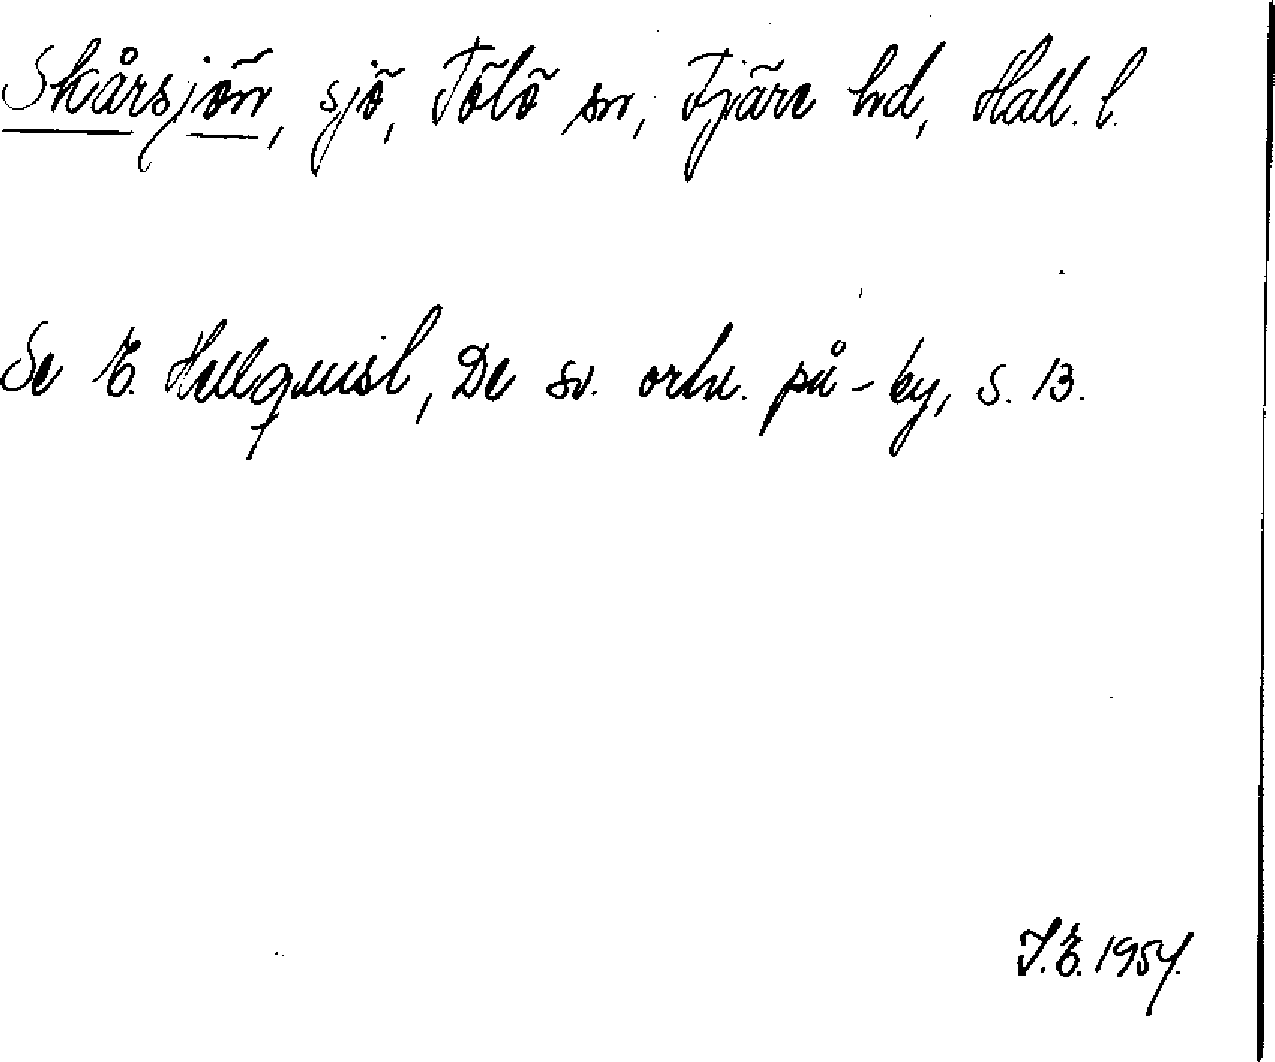 Skårsjön, sjö, Tölö sn, Fjäre hd, Hall. l.
Se E. Hellquist, De sv. ortn. på -by, s. 13.
I.E. 1954.